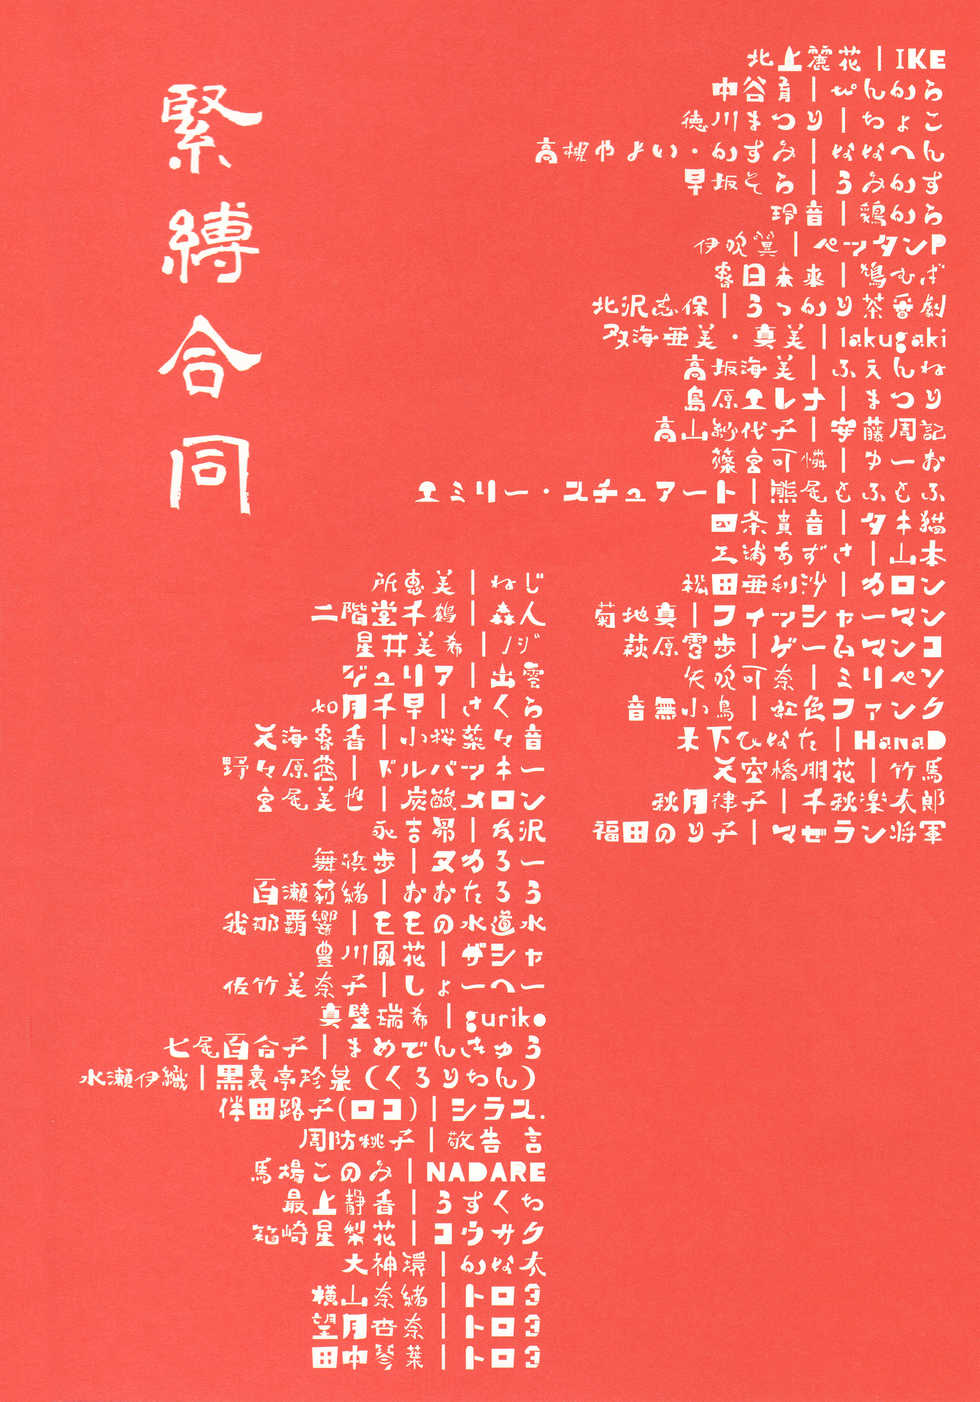 緊縛合同
北上麗花|IKE
中谷育|ぴんから
徳川まつり|ちょこ
高槻やよい・かすみ|ななへん
早坂そら|うみかず
玲音|鶏から
伊吹翼|ペッタンP
春日未来|鴇むぎ
北沢志保|うっかり茶番劇
双海亜美・真美|lakugaki
高坂海美|ふえんね
島原エレナ|まつり
高山紗代子|安藤周記
篠宮可憐|ゆーお
エミリー・スチュアート|熊尾もふもふ
四条貴音|タキ猫
三浦あずさ|山本
松田亜利沙|カロン
菊地真|フィッシャーマン
萩原雪歩|ゲームマンコ
矢吹可奈|ミリペン
音無小鳥|虹色ファンク
木下ひなた|HanaD
天空橋朋花|竹馬
秋月律子|千秋楽太郎
福田のり子|マゼラン将軍
所恵美|ねじ
二階堂千鶴|森人
星井美希|ノジ
ジュリア|出雲
如月千早|さくら
天海春香|小桜菜々音
野々原茜|ドルバッキー
宮尾美也|炭酸メロン
永吉昴|友沢
舞浜歩|ヌカろー
百瀬莉緒|おおたろう
我那覇響|モモの水道水
豊川風花|ザシャ
佐竹美奈子|しょーへー
真壁瑞希|guriko
七尾百合子|まめでんきゅう
水瀬伊織|黒裏亭珍棊(くろりちん)
伴田路子(ロコ)|シラス.
周防桃子|敬告 言
馬場このみ|NADARE
最上静香|うすくち
箱崎星梨花|コウサク
大神環|かな太
横山奈緒|トロ3
望月杏奈|トロ3
田中琴葉|トロ3